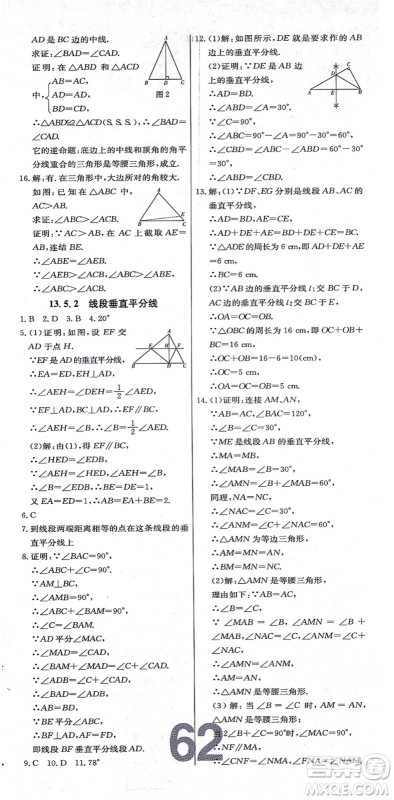 AD是BC边的中线.
求证：∠BAD=∠CAD.
证明：在△ABD和△ACD
中，
AB=AC,
AD=AD,
BD=CD,
图2
∴△ABD≌△ACD(S.S.S.),
∴∠BAD=∠CAD.
它的逆命题：底边上的中线和顶角的角平
分线重合的三角形是等腰三角形,成立.
16.解：有.在三角形中,大边对的角较大.
已知：在△ABC中,
AC>AB.
求证：∠ABC>∠C.
证明：∵AC>AB,在
AC上截取AE=AB,
∴∠ABE=∠AEB.
∵∠AEB>∠C,
∴∠ABE>∠C.
∴∠ABC>∠C.
13.5.2 线段垂直平分线
1.B 2.B 3.B 4.20°
5.(1)证明：如图,设EF交
AD于点H.
∵EF是AD的垂直平分线,
∴EA=ED,EH⊥AD,
∴∠AEH=∠DEH=1/2∠AED.
∵EF⊥AD,BC⊥AD,∴EF∥BC,
∴∠EBD=∠AEH=1/2∠AED.
(2)解：由(1),得EF∥BC,
∴∠HED=∠EDB.
∵∠EBD=∠AEH=∠HED,
∴∠EBD=∠EDB,∴BE=DE=1.
又EA=ED=1,∴AB=EA+BE=2.
6.C
7.到线段两端距离相等的点在这条线段的垂
直平分线上
8.证明：∵∠BAC=90°,
∴∠ABC+∠C=90°.
∵AM⊥BC,
∴∠AMB=90°,
∴∠ABC+∠BAM=90°,
∴∠C=∠BAM.
∵AD平分∠MAC,
∴∠MAD=∠CAD,
∴∠BAM+∠MAD=∠C+∠CAD.
∵∠ADB=∠C+∠CAD,
∴∠BAD=∠ADB,
∴AB=BD.
∵BE平分∠ABC,
∴BF⊥AD,AF=FD,
即线段BF垂直平分线段AD.
9.C 10.D 11.78°
12.(1)解：如图所示,DE就是要求作的AB
边上的垂直平分线.
(2)证明：∵DE是AB边
上的垂直平分线,
∴AD=BD.
∴∠ABD=∠A=30°.
∵∠C=90°,
∴∠ABC=90°-∠A=90°-30°=60°,
∴∠CBD=∠ABC-∠ABD=60°-30°=30°,
∴∠ABD=∠CBD,
∴BD平分∠CBA.
13.解：(1)∵DF,EG分别是线段AB,AC的
垂直平分线,
∴AD=BD,AE=CE,
∴AD+DE+AE=BD+DE+CE=BC.
∵△ADE的周长为6 cm,即AD+DE+
AE=6 cm,
∴BC=6 cm.
(2)∵AB边的垂直平分线l₁交BC于点
D,AC边的垂直平分线l₂交BC于点E,
∴OA=OC=OB.
∵△OBC的周长为16 cm,即OC+OB+
BC=16 cm,
∴OC+OB=16-6=10(cm),
∴OC=5 cm,
∴OA=OC=OB=5 cm.
14.(1)证明：连接AM、AN,
∵AB=AC,∠BAC=120°,
∴∠B=∠C=30°.
∵ME是线段AB的垂直平分线,
∴MA=MB,
∴∠MAB=∠B=30°,
同理,NA=NC,
∴∠NAC=∠C=30°,
∴∠AMN=∠ANM=60°,
∴△AMN是等边三角形,
∴AM=MN=AN,
∴BM=MN=NC.
(2)解：△AMN是等腰三角形.
理由如下：
∵AB=AC,
∴∠B=∠C.
∵MA=MB,
∴∠MAB=∠B,
同理,∠NAC=∠C,
∴∠AMN=∠ANM,
∴△AMN是等腰三角形.
(3)解：当∠MAN=90°时,
∵NF∥MA,
∴∠CNF=∠AMN,∠FNA=∠NAM,
62